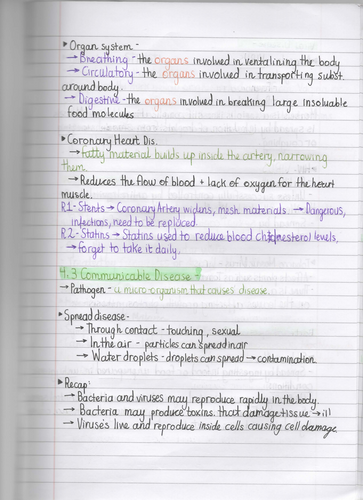 ‣ Organ system -
→ Breathing - the organs involved in ventalining the body
→ Circulatory - the organs involved in transporting subst.
around body.
→ Digestive - the organs involved in breaking large insoluable
food molecules
‣ Coronary Heart Dis.
→ fatty material builds up inside the artery, narrowing
them.
→ Reduces the flow of blood + lack of oxygen for the heart
muscle.
R1 - Stents → Coronary Artery widens, mesh materials → Dangerous,
infections, need to be replaced.
R2 - Statins → Statins used to reduce blood cholesterol levels,
→ forget to take it daily.
4.3 Communicable Disease -
→ Pathogen - a micro-organism that causes disease.
‣ Spread disease -
→ Through contact - touching, sexual
→ In the air - particles can spread in air
→ Water droplets - droplets can spread → contamination.
‣ Recap:
→ Bacteria and viruses may reproduce rapidly in the body.
→ Bacteria may produce toxins that damage tissue → ill
→ Viruses live and reproduce inside cells causing cell damage.